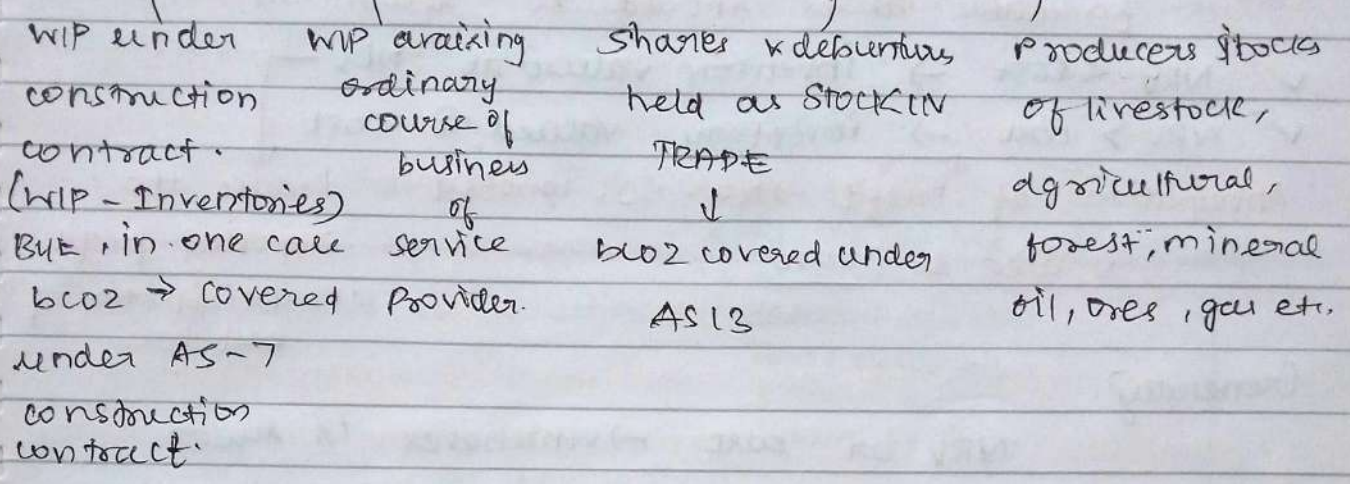 WIP under
construction
contract.
(WIP - Inventories)
BUT, in one case
bcoz → covered
under AS-7
construction
contract.
WIP araising
ordinary
course of
business
of
service
Provider.
Shares & debentures
held as STOCK IN
TRADE
↓
bcoz covered under
AS 13
Producers stocks
of livestock,
agricultural,
forest, mineral
oil, ores, gas etc.